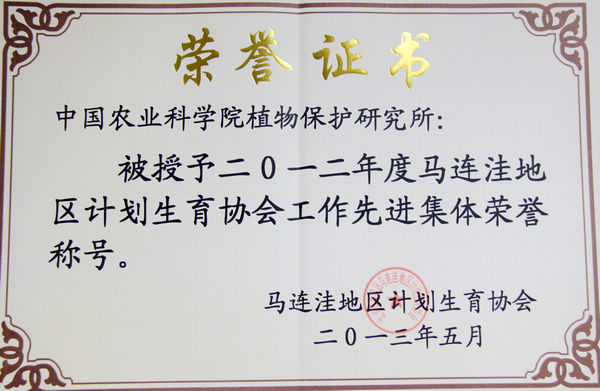 荣誉证书
中国农业科学院植物保护研究所：
被授予二０一二年度马连洼地
区计划生育协会工作先进集体荣誉
称号。
马连洼地区计划生育协会
二０一三年五月